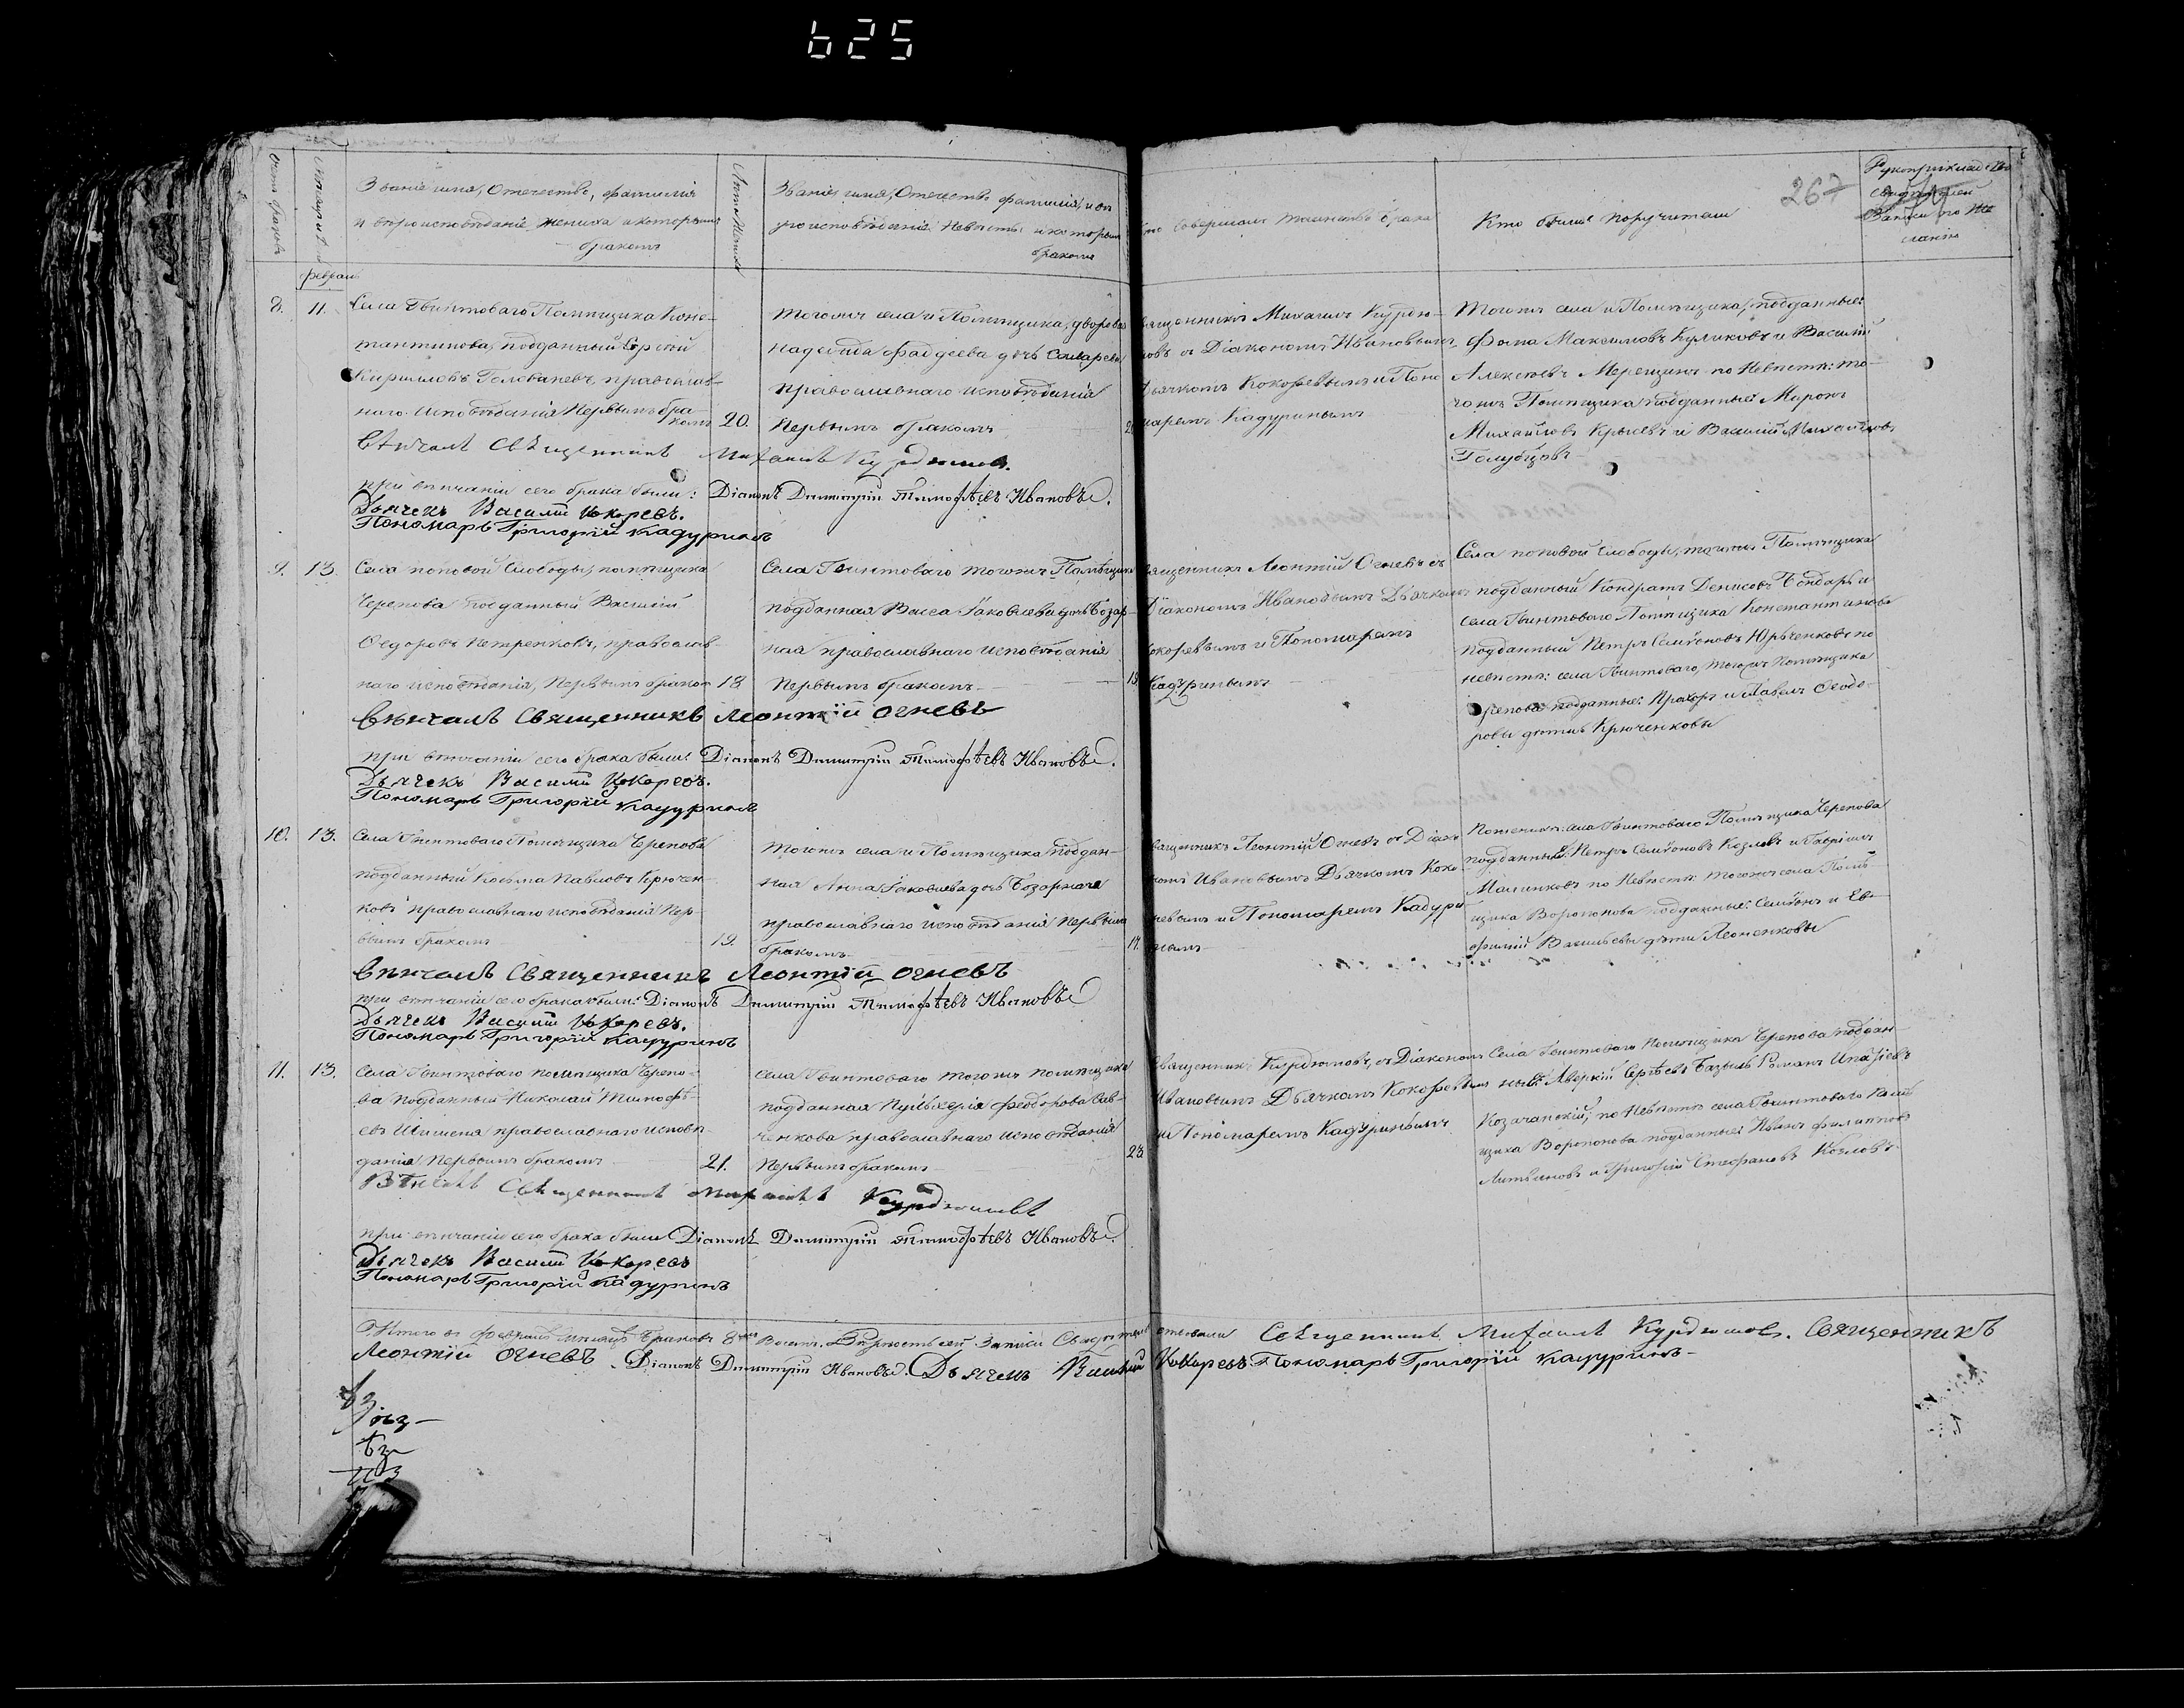 625
267
Счетъ браковъ
Званіе имя, Отечество, фамилія
и вѣроисповѣданіе жениха и которымъ
бракомъ
Лѣта Жениха
Званіе имя, Отечество фамилія, и вѣ
роисповѣданіе Невѣсты и которымъ
бракомъ
Кто совершалъ таинство брака
Кто были поручители
Рукоприкладство
свидѣтелей
записи по же
ланію
Февраль
8. 11.
Села Гвинтоваго Помѣщика Конс-
тантинова, подданный Сергѣй
Кириловъ Голованевъ, православ-
наго исповѣданія Первымъ бра-
комъ 20.
тогожъ села и Помѣщика, дворовая
надежда Фаддеева дочь
православнаго исповѣданія
Первымъ бракомъ
Священникъ Михаилъ Курдю-
мовъ съ Діакономъ Ивановымъ
Дьячкомъ Кокоревымъ и Поно
маремъ Кадуринымъ
Тогожъ села и Помѣщика, подданные:
Фома Максимовъ Куликовъ и Василій
Алексѣевъ Мерещинъ по Невѣстѣ: то-
гожъ Помѣщика подданные Миронъ
Михайловъ Крысевъ и Василій Михайловъ
Голубцовъ
Вѣнчалъ Священникъ Михаилъ Курдюмовъ.
при вѣнчаніи сего брака были: Діаконъ Димитрій Тимофѣевъ Ивановъ.
Дьячекъ Василій Кокоревъ.
Пономарь Григорій Кадуринъ
9. 13.
Села поповой Слободы, помѣщика
Черепова подданный Василій
Ѳедоровъ Петренковъ, православ-
наго исповѣданія, Первымъ браком 18
Села Гвинтоваго тогожъ Помѣщика
подданная Васса Яковлева дочь Бозар-
ная православнаго исповѣданія
Первымъ бракомъ
18
Священникъ Леонтій Огневъ съ
Діакономъ Ивановымъ Дьячкомъ
Кокоревымъ и Пономаремъ
Кадуринымъ
Села поповой слободы, тогожъ Помѣщика
подданный Кондратъ Денисовъ Бондарь и
села Гвинтоваго Помѣщика Константинова
подданный Петръ Семёновъ Юрьченковъ по
невѣстѣ: села Гвинтоваго, тогожъ Помѣщика
Черепова подданные: Прахоръ и Павелъ Ѳеодо-
ровы дѣти Крюченковы
Вѣнчалъ Священникъ Леонтій Огневъ
при вѣнчаніи сего брака были: Діаконъ Димитрій Тимофѣевъ Ивановъ.
Дьячекъ Василій Кокоревъ.
Пономарь Григорій Кадуринъ
10. 13.
Села Гвинтоваго Помѣщика Черепова
подданный Косьма Павловъ Крючен-
ковъ православнаго исповѣданія Пер-
вымъ бракомъ 19.
тогожъ села и Помѣщика поддан-
ная Анна Яковлева дочь Бозарная
православнаго исповѣданія Первымъ
бракомъ
17.
Священникъ Леонтій Огневъ съ Діако
номъ Ивановымъ Дьячкомъ Коко-
ревымъ и Пономаремъ Кадури-
нымъ
По женихѣ: села Гвинтоваго Помѣщика Черепова
подданный: Петръ Семёновъ Козловъ и Гавріилъ
Малинковъ по Невѣстѣ: тогожъ села Помѣ-
щика Воропонова подданные: Семёнъ и Ев-
фимій Васильевы дѣти Леоненковы
Вѣнчалъ Священникъ Леонтій Огневъ
при вѣнчаніи сего брака были: Діаконъ Димитрій Тимофѣевъ Ивановъ
Дьячекъ Василій Кокоревъ.
Пономарь Григорій Кадуринъ
11. 13.
Села Гвинтоваго помѣщика Черепо-
ва подданный Николай Тимофѣ-
евъ Шишена православнаго исповѣ-
данія Первымъ бракомъ 21.
Села Гвинтоваго тогожъ помѣщика
подданная Пульхерія Феодорова Сав-
ченкова православнаго исповѣданія
Первымъ бракомъ
23.
Священникъ Курдюмовъ, съ Діакономъ
Ивановымъ Дьячкомъ Кокоревым
и Пономаремъ Кадуринымъ
Села Гвинтоваго Помѣщика Черепова поддан-
ный: Аверкій Сергѣевъ Базылъ Романъ
Козачанскій; по Невѣстѣ села Гвинтоваго Помѣ
щика Воропонова подданные: Иванъ Филиповъ
Литвиновъ и Григорій Стефановъ Козловъ
Вѣнчалъ Священникъ Михаилъ Курдюмовъ
при вѣнчаніи сего брака были Діаконъ Димитрій Тимофѣевъ Ивановъ.
Дьячекъ Василій Кокоревъ
Пономарь Григорій Кадуринъ
Итого въ Февралѣ мѣсяцѣ Браковъ 8 Восемь. Вѣрность сей Записи Свидѣтельствовали Священникъ Михаилъ Курдюмовъ. Священникъ
Леонтій Огневъ. Діаконъ Димитрій Ивановъ. Дьячекъ Василій Кокоревъ. Пономарь Григорій Кадуринъ